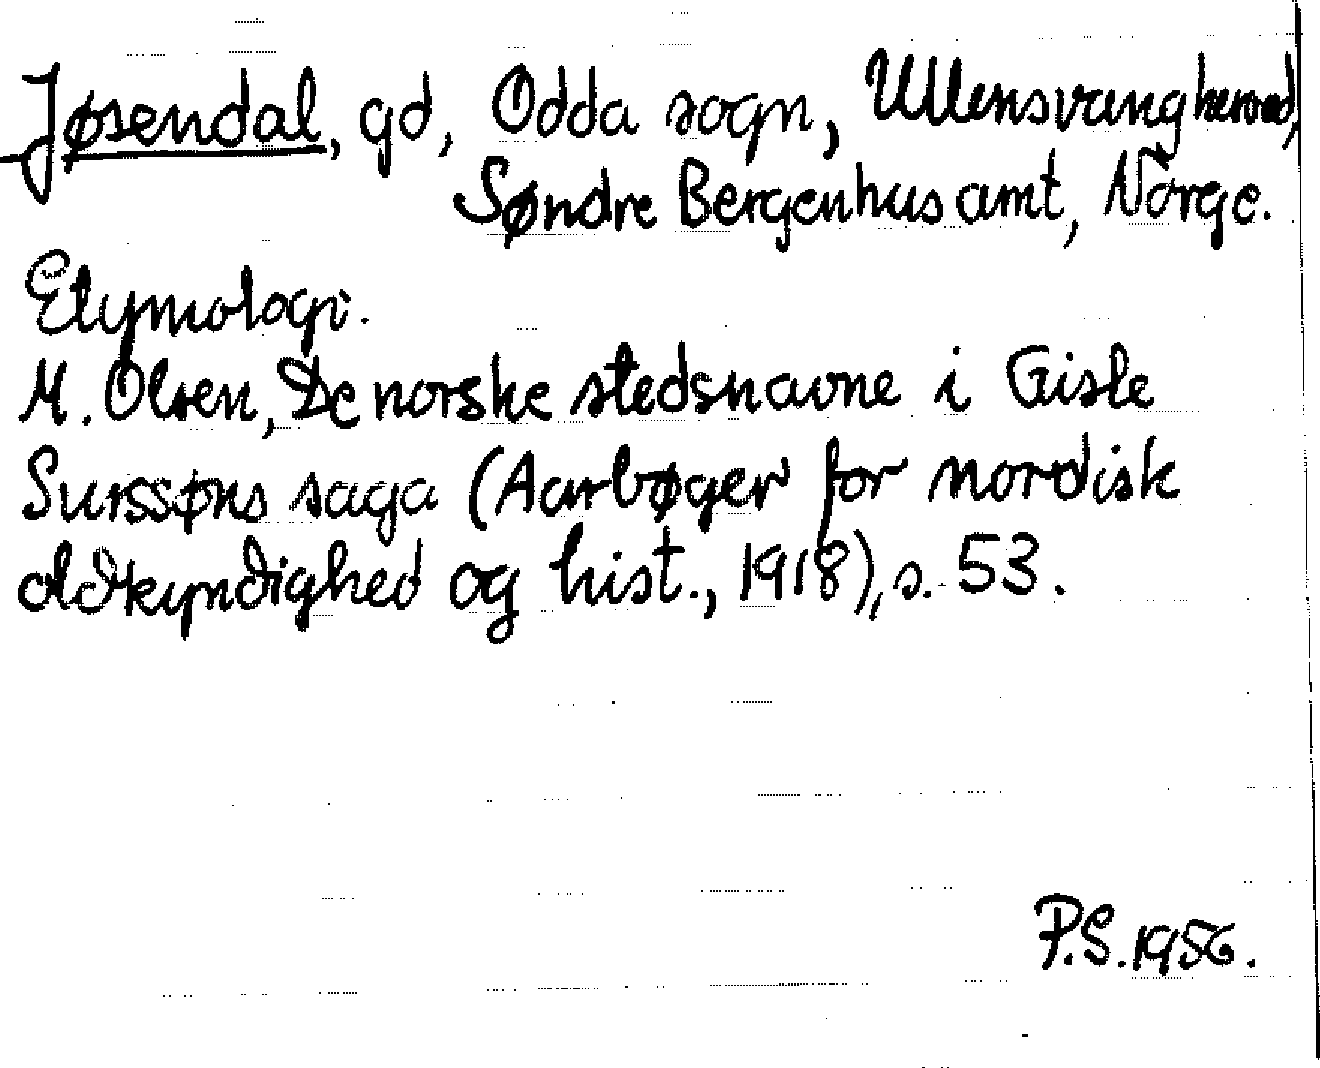 Jøsendal, gd, Odda sogn, Ullensvang herred,
Søndre Bergenhus amt, Norge.
Etymologi.
M. Olsen, De norske stedsnavne i Gisle
Surssøns saga (Aarbøger for nordisk
oldkyndighed og hist., 1918), s. 53.
P.S. 1956.